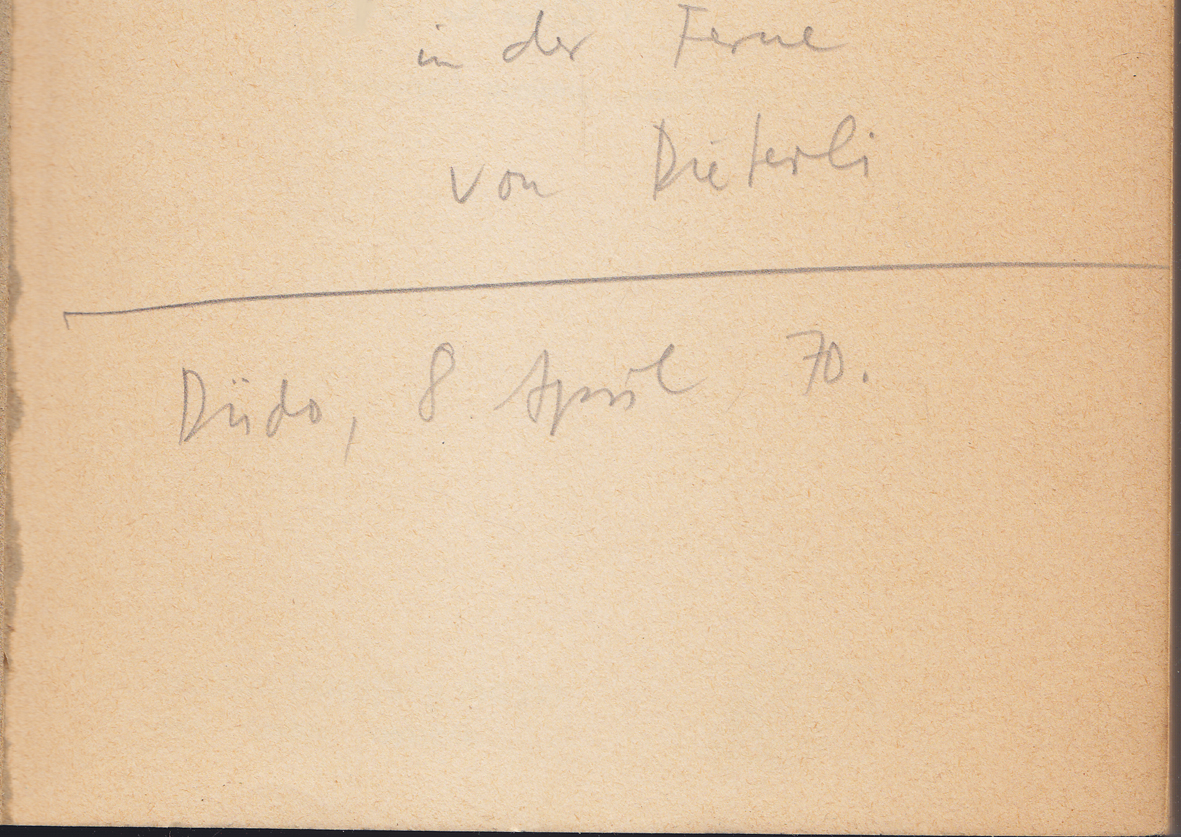 in der Ferne
von Dieterli
Düdo, 8 April 70.